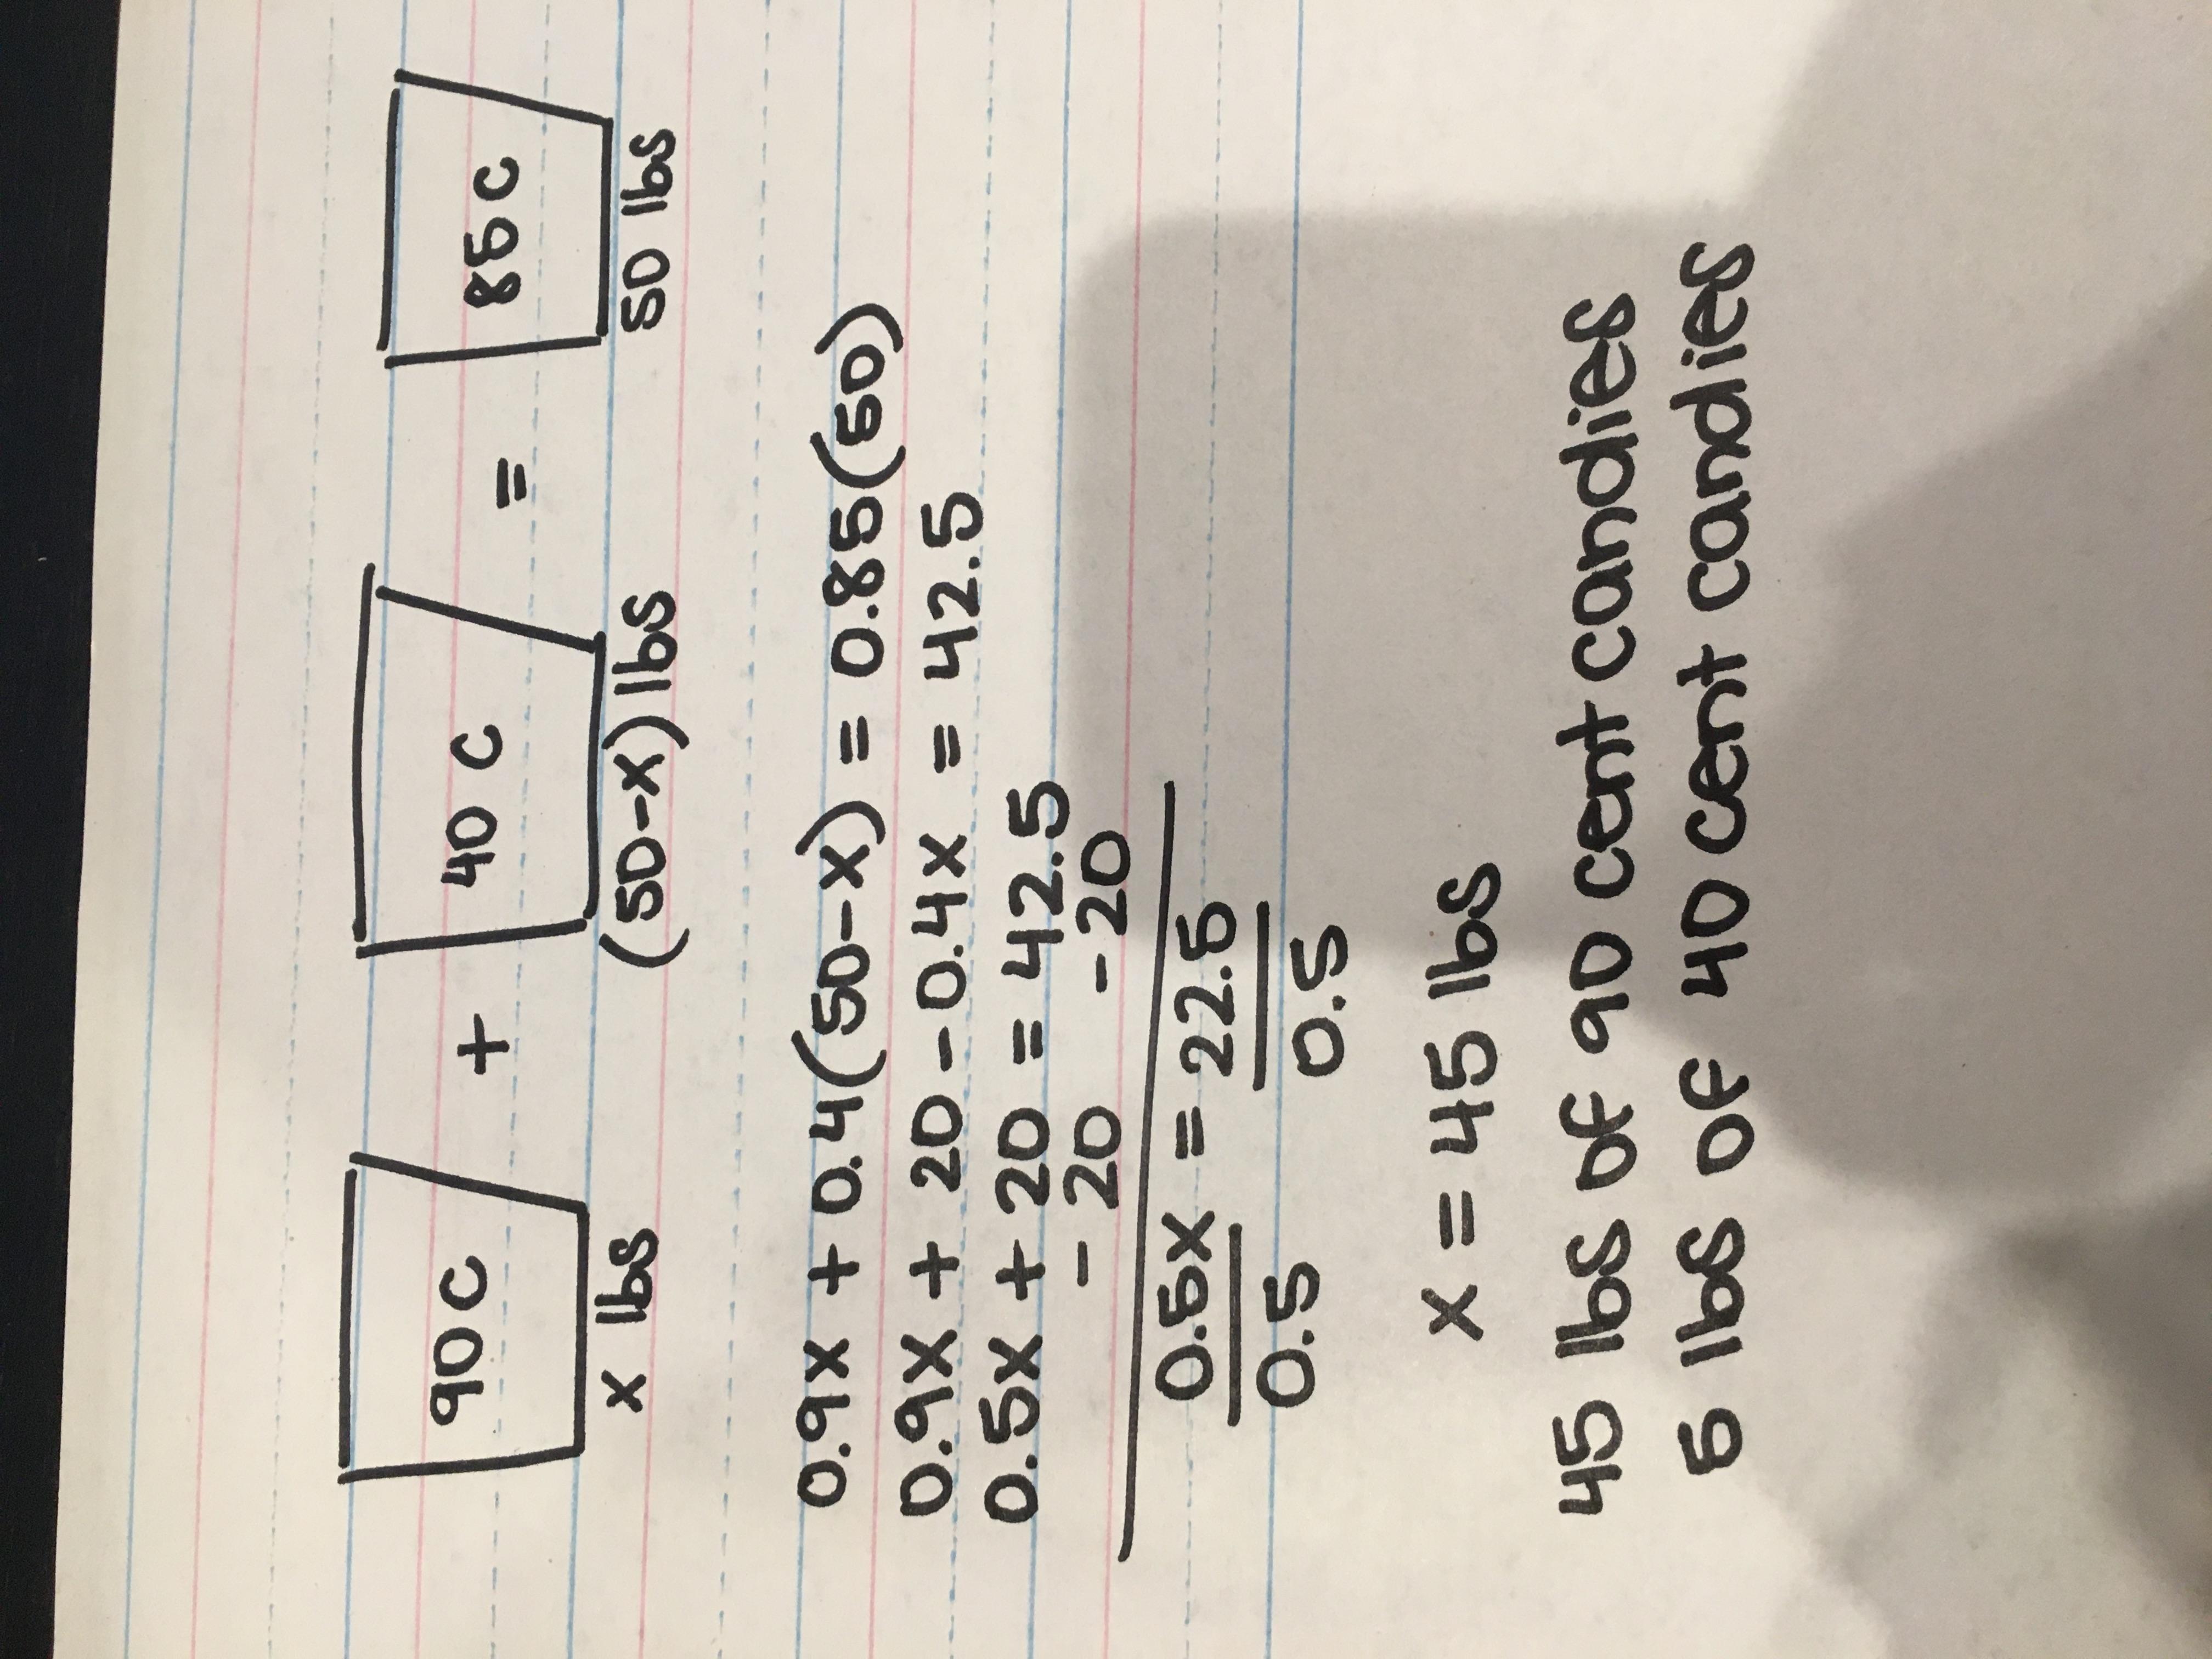 90 C + 40 C = 85 C
x lbs (50-x) lbs 50 lbs
0.9x + 0.4(50-x) = 0.85(50)
0.9x + 20 - 0.4x = 42.5
0.5x + 20 = 42.5
- 20 - 20
0.5x = 22.5
0.5 0.5
x = 45 lbs
45 lbs of 90 cent candies
5 lbs of 40 cent candies